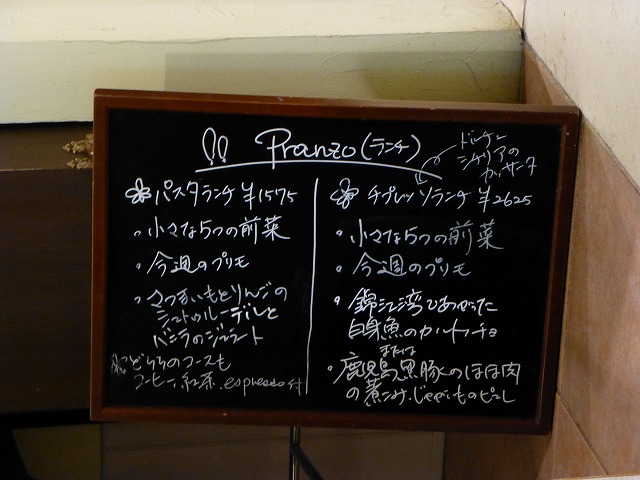 !! Pranzo (ランチ)
ドルチェ
シチリアの
カッサータ
パスタランチ ¥1575
・小さな5つの前菜
・今週のプリモ
・さつまいもとりんごの
シュトゥルーデルと
バニラのジェラート
どちらのコースも
コーヒー、紅茶、espresso付
チプレッソランチ ¥2625
・小さな5つの前菜
・今週のプリモ
・錦江湾であがった
白身魚のカルトッチョ
または
・鹿児島黒豚のほほ肉
の煮こみ、じゃがいものピュレ